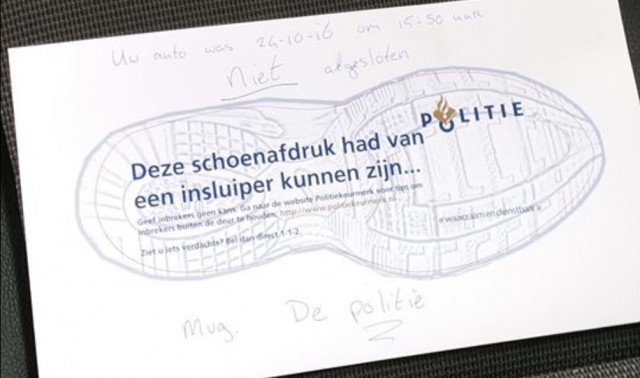 Uw auto was 24-10-16 om 15-50 uur
niet afgesloten
POLITIE
Deze schoenafdruk had van
een insluiper kunnen zijn...
Geef inbrekers geen kans. Ga naar de website Politiekeurmerk voor tips om
inbrekers buiten de deur te houden: http://www.politiekeurmerk.nl
«waakzaam en dienstbaar»
Ziet u iets verdachts? Bel dan direct 1-1-2
Mvg. De politie